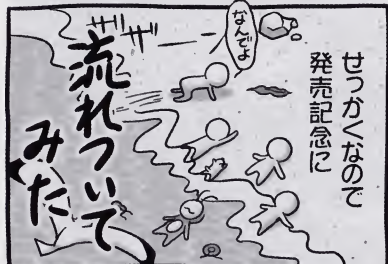 せっかくなので
発売記念に
なんでよ
ザザ
流れついて
みた